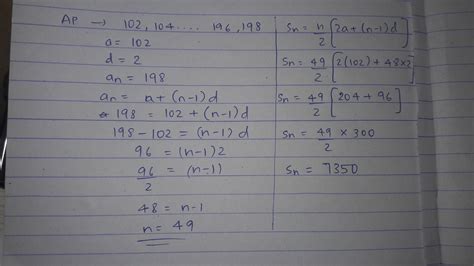 AP → 102, 104 .... 196, 198
a = 102
d = 2
an = 198
an = a + (n-1) d
198 = 102 + (n-1) d
198 - 102 = (n-1) d
96 = (n-1) 2
96/2 = (n-1)
48 = n-1
n = 49
Sn = n/2 [2a + (n-1) d]
Sn = 49/2 [2(102) + 48×2]
Sn = 49/2 [204 + 96]
Sn = 49/2 × 300
Sn = 7350